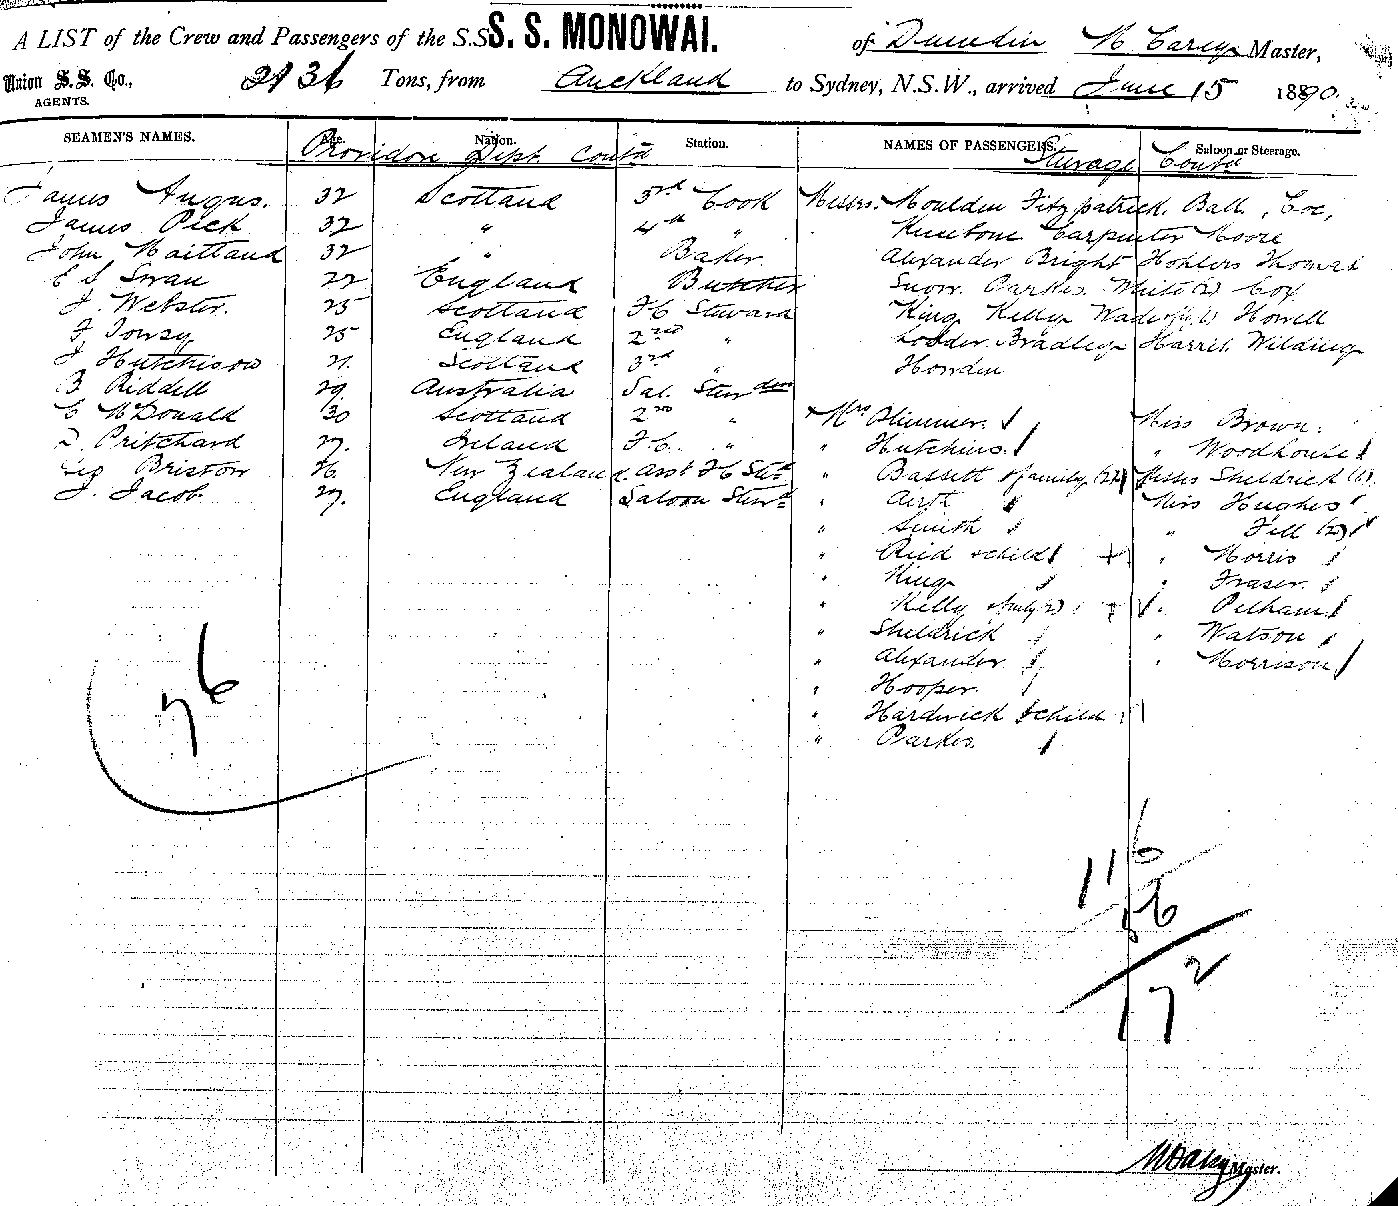 A LIST of the Crew and Passengers of the S.S. S. S. MONOWAI. of Dunedin M Carey Master,
Union S.S. Co., AGENTS. 2136 Tons, from Auckland to Sydney, N.S.W., arrived June 15 1890.
SEAMEN'S NAMES. Age. Nation. Station. NAMES OF PASSENGERS. Saloon or Steerage.
Providore Dept Contd Steerage Contd
James Angus. 32 Scotland 3rd Cook Messrs. Moulden Fitzpatrick. Ball. Coe,
James Peck 32 " 4th " Carpenter Moore
John Maitland 32 " Baker. Alexander Bright Hohlers Thomas
E S Swan 22 England Butcher Snow. Parkes. White (2) Cox
J. Webster. 25 Scotland FC Steward King Kelly Howell
F. 25 England 2nd " Loader. Bradley Harris. Wilding
J Hutchison 21. Scotland 3rd " Howden
B Riddell 29. Australia Sal. Stewdess
C McDonald 30 Scotland 2nd " Mrs Plimmer. Miss Brown.
D. Pritchard 27. Ireland F.C. " " Hutchins. " Woodhouse
Geo Bristow 26. New Zealand. Asst FC Std " Bassett & family (2) Misses Sheldrick
J. Jacob 27. England Saloon Stewd " Airth Miss Hughes
" Smith " Fell (2)
" Reid & child " Morris
" King " Fraser.
" Kelly & family " Pelham
" Sheldrick " Watson
" Alexander. " Morrison
" Hooper.
" Hardwick & child
" Parkes.
76
116
56
172
M Carey Master.